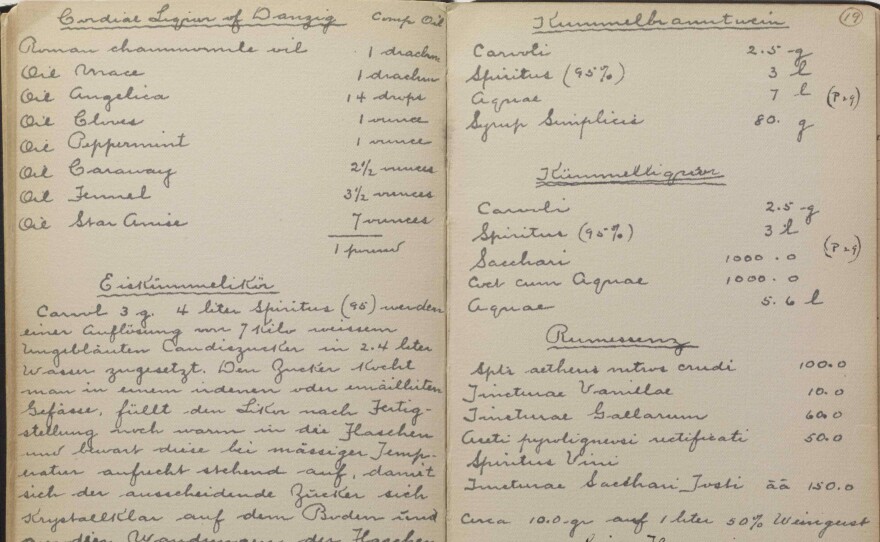 Cordial Liqior of Danzig Comp Oil
Roman chammomile oil 1 drachm
Oil Mace 1 drachm
Oil Angelica 14 drops
Oil Cloves 1 ounce
Oil Peppermint 1 ounce
Oil Caraway 2½ ounces
Oil Fennel 3½ ounces
Oil Star Anise 7 ounces
1 pound
Eiskümmelikör
Carvol 3 g. 4 liter Spiritus (95) werden
einer Auflösung von 7 Kilo weissem
ungebläuten Candiszucker in 2.4 liter
Wasser zugesetzt. Den Zucker Kocht
man in einem irdenen oder emaillirten
Gefässe, füllt den Likör nach Fertig-
stellung noch warm in die Flaschen
und bewart diese bei mässiger Temp-
eratur aufrecht stehend auf, damit
sich der ausscheidende Zucker sich
Krystallklar auf dem Boden und
an den Wandungen der Flaschen
19
Kummelbranntwein
Carvoli 2.5 g
Spiritus (95%) 3 l
Aquae 7 l
Syrup Simplicis 80. g
Kümmelliqueur
Carvoli 2.5 g
Spiritus (95%) 3 l
Sacchari 1000.0
Coct cum Aquae 1000.0
Aquae 5.6 l
Rumessenz
Sptr aetheris nitros crudi 100.0
Tincturae Vanillae 10.0
Tincturae Gallarum 60.0
Aceti pyrolignosi rectificati 50.0
Spiritus Vini
Tincturae Sacchari Tosti āā 150.0
Circa 10.0 gr auf 1 liter 50% Weingeist